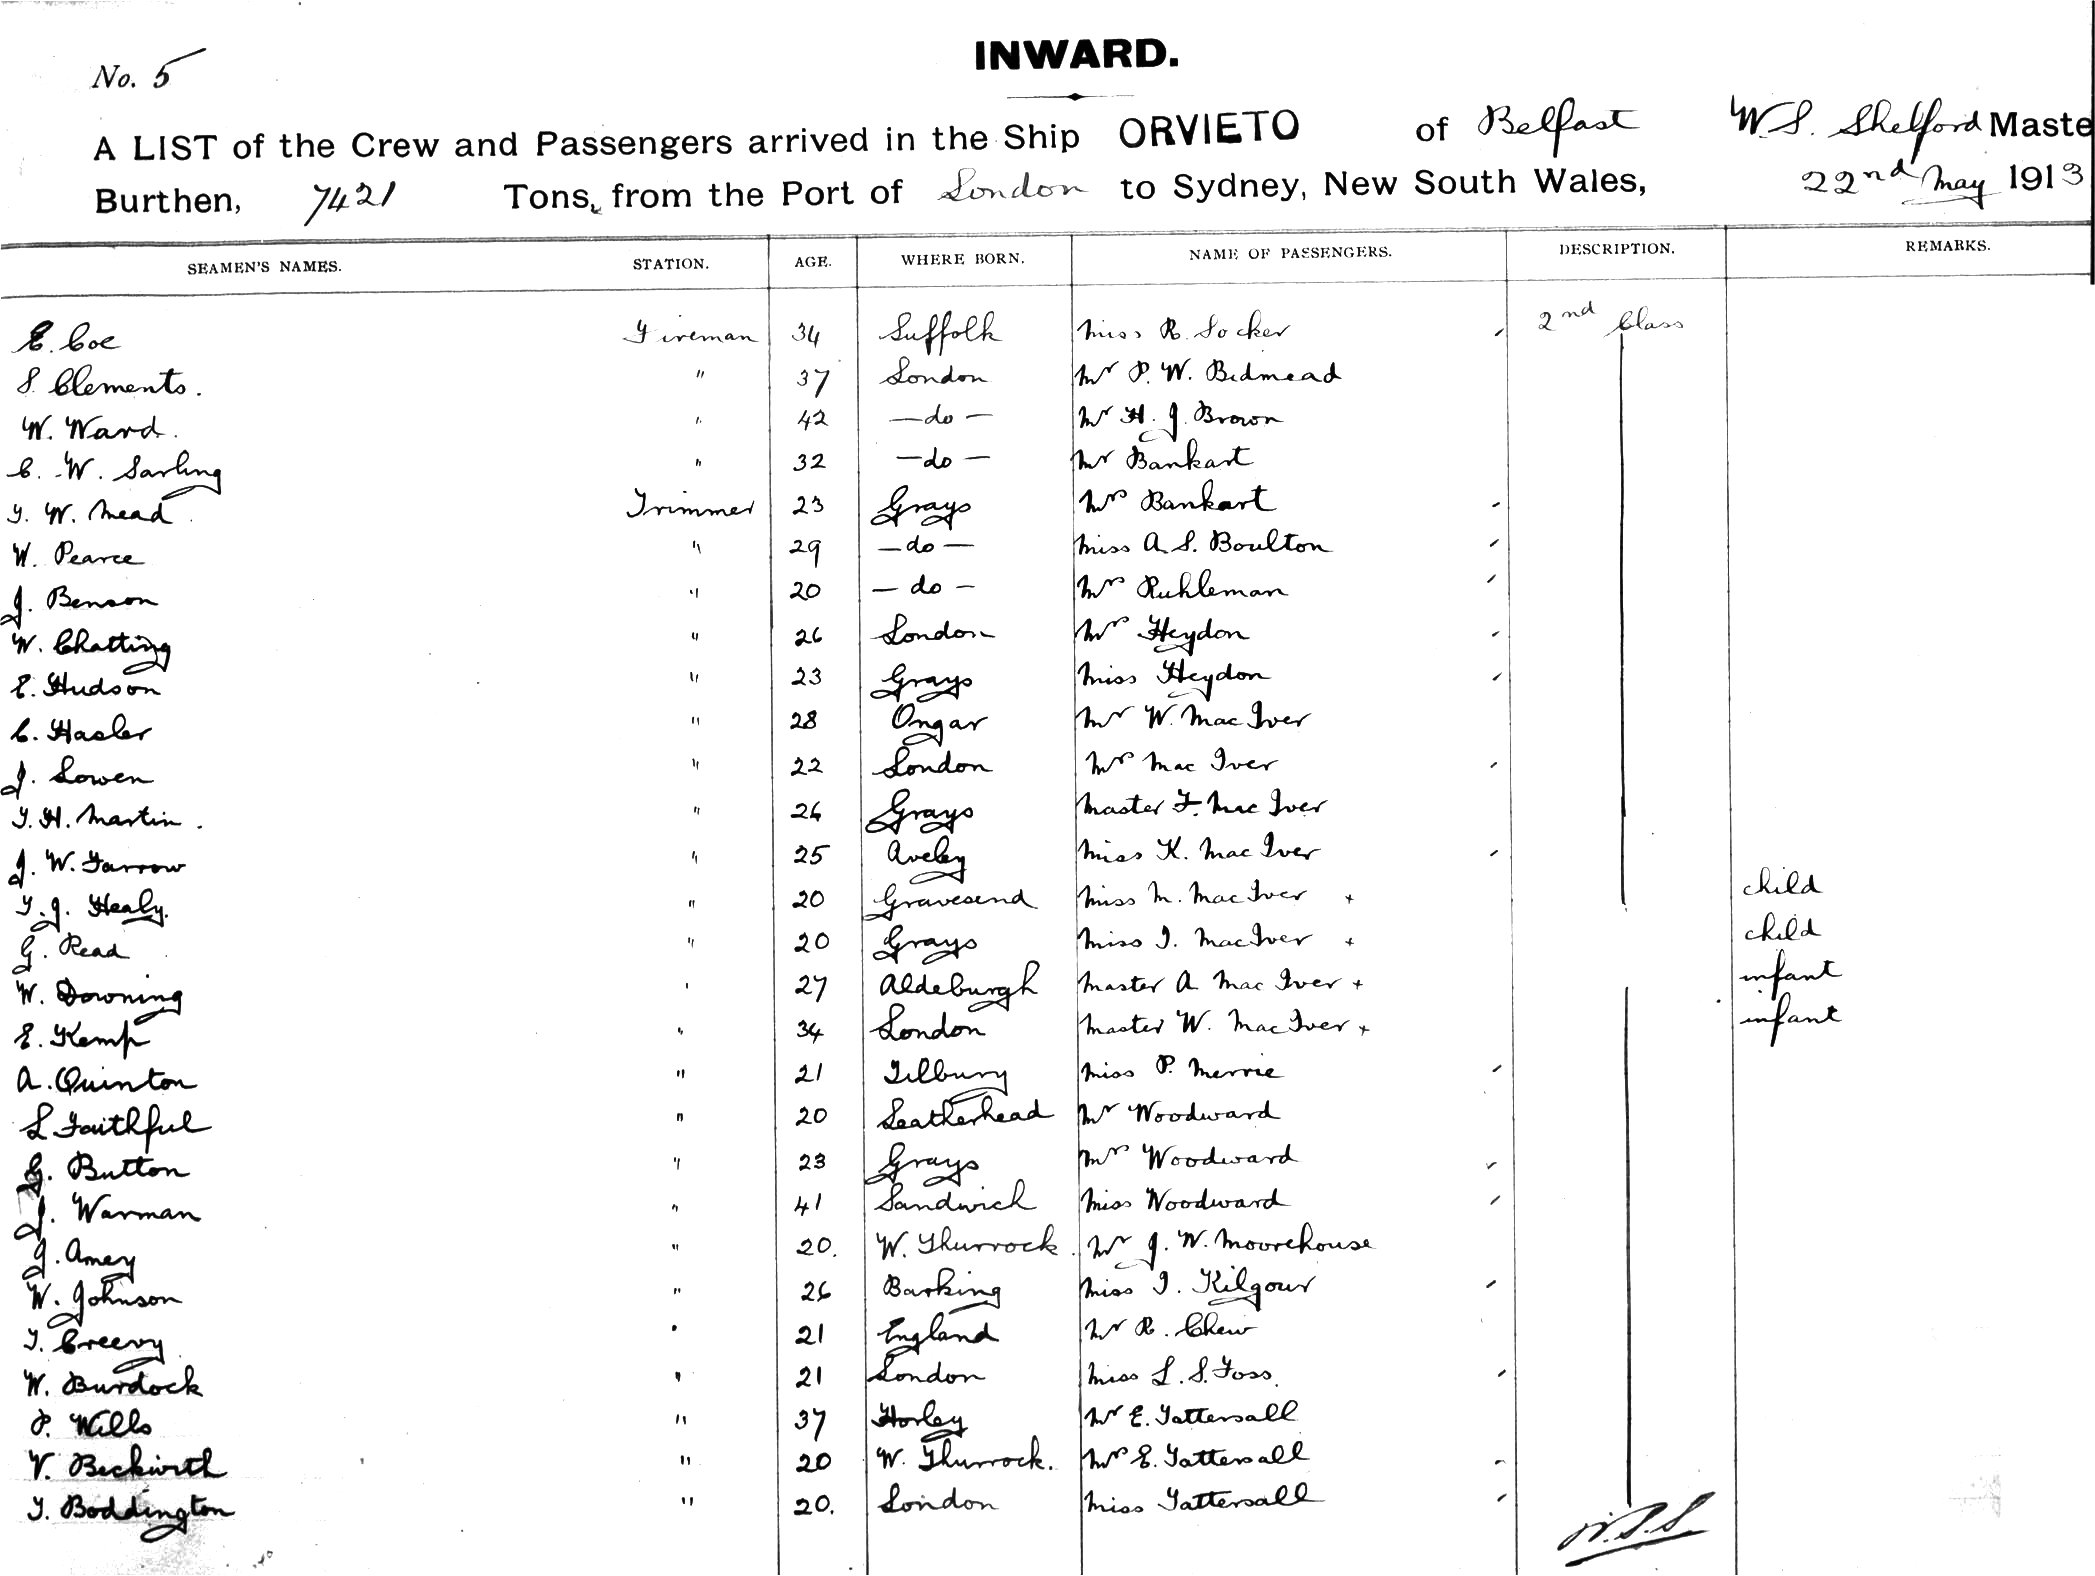 INWARD.
No. 5
A LIST of the Crew and Passengers arrived in the Ship ORVIETO of Belfast W. S. Shelford Maste
Burthen, 7421 Tons, from the Port of London to Sydney, New South Wales, 22nd May 1913
SEAMEN'S NAMES. STATION. AGE. WHERE BORN. NAME OF PASSENGERS. DESCRIPTION. REMARKS.
E. Coe Fireman 34 Suffolk Miss R. Locker 2nd Class
S. Clements. " 37 London Mr P. W. Bidmead
W. Ward. " 42 —do— Mr H. J. Brown
C. W. Sarling " 32 —do— Mr Bankart
T. W. Mead Trimmer 23 Grays Mrs Bankart
W. Pearce " 29 —do— Miss A. S. Boulton
J. Benson " 20 —do— Mrs Ruhleman
W. Chatting " 26 London Mrs Heydon
E. Hudson " 23 Grays Miss Heydon
C. Hasler " 28 Ongar Mr W. Mac Iver
J. Lowen " 22 London Mrs Mac Iver
T. H. Martin. " 26 Grays Master F. Mac Iver
J. W. Farrow " 25 Aveley Miss K. Mac Iver
T. J. Healy. " 20 Gravesend Miss M. Mac Iver + child
G. Read " 20 Grays Miss I. Mac Iver + child
W. Downing " 27 Aldeburgh Master A Mac Iver + infant
E. Kemp " 34 London Master W. Mac Iver + infant
A. Quinton " 21 Tilbury Miss P. Merrie
L Faithful " 20 Leatherhead Mr Woodward
G. Button " 23 Grays Mrs Woodward
J. Warman " 41 Sandwich Miss Woodward
J. Amey " 20. W. Thurrock. Mr J. W. Moorehouse
W. Johnson " 26 Barking Miss I. Kilgour
T. Creevy " 21 England Mr R. Chew
W. Burdock " 21 London Miss L. S. Foss.
P. Wills " 37 Horley Mr E. Tattersall
V. Beckwith " 20 W. Thurrock. Mrs E. Tattersall
T. Boddington " 20. London Miss Tattersall
W.S.S.